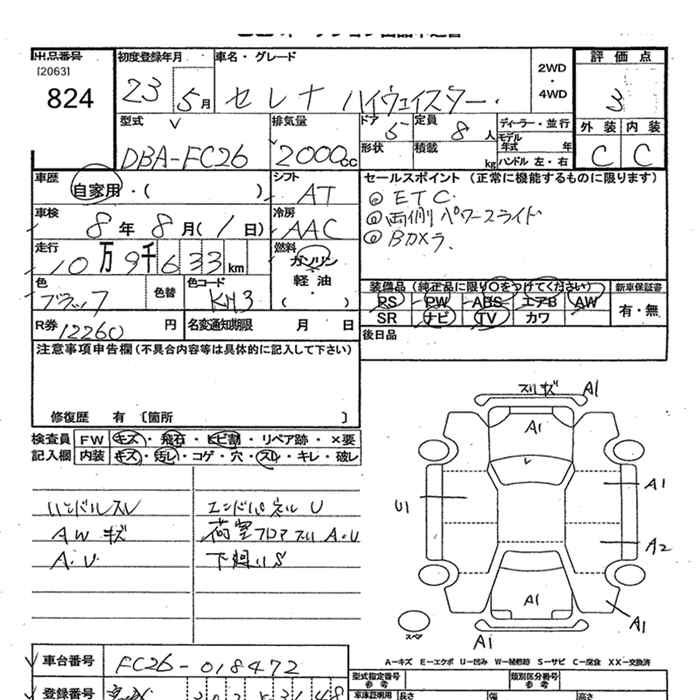 出品番号
[2063]
824
初度登録年月
23 5月
車名・グレード
セレナ ハイウェイスター
2WD
・
4WD
評価点
3
外装 内装
C C
型式
DBA-FC26
排気量
2000cc
ドア
5
定員
8人
形状
積載
kg
ディーラー・並行
モデル
年式 年
ハンドル 左・右
車歴
自家用・( )
シフト
AT
車検
8年8月(1日)
冷房
AAC
走行
10万9千633km
燃料
ガソリン
軽油
( )
色
ブラック
色替
色コード
KH3
R券 12260円
名変通知期限 月 日
セールスポイント (正常に機能するものに限ります)
◎ETC
◎両側パワースライド
◎Bカメラ
装備品(純正品に限り〇をつけてください)
PS PW ABS エアB AW
SR ナビ TV カワ
新車保証書
有・無
後日品
注意事項申告欄(不具合内容等は具体的に記入して下さい)
修復歴 有 〔箇所 〕
検査員
記入欄
FW キズ・飛石・ヒビ割・リペア跡・×要
内装 キズ・汚レ・コゲ・穴・スレ・キレ・破レ
ハンドルスレ
AWキズ
A・U
エンドパネルU
荷室フロアスレA・U
下廻りS
スリキズ A1
A1
U1
A1
A2
A1
A1
A1
スペア
A−キズ E−エクボ U−凹み W−補修跡 S−サビ C−腐食 XX−交換済
車台番号 FC26-018472
登録番号
型式指定番号
参考
類別区分番号
参考
車庫証明用
長さ
幅
高さ